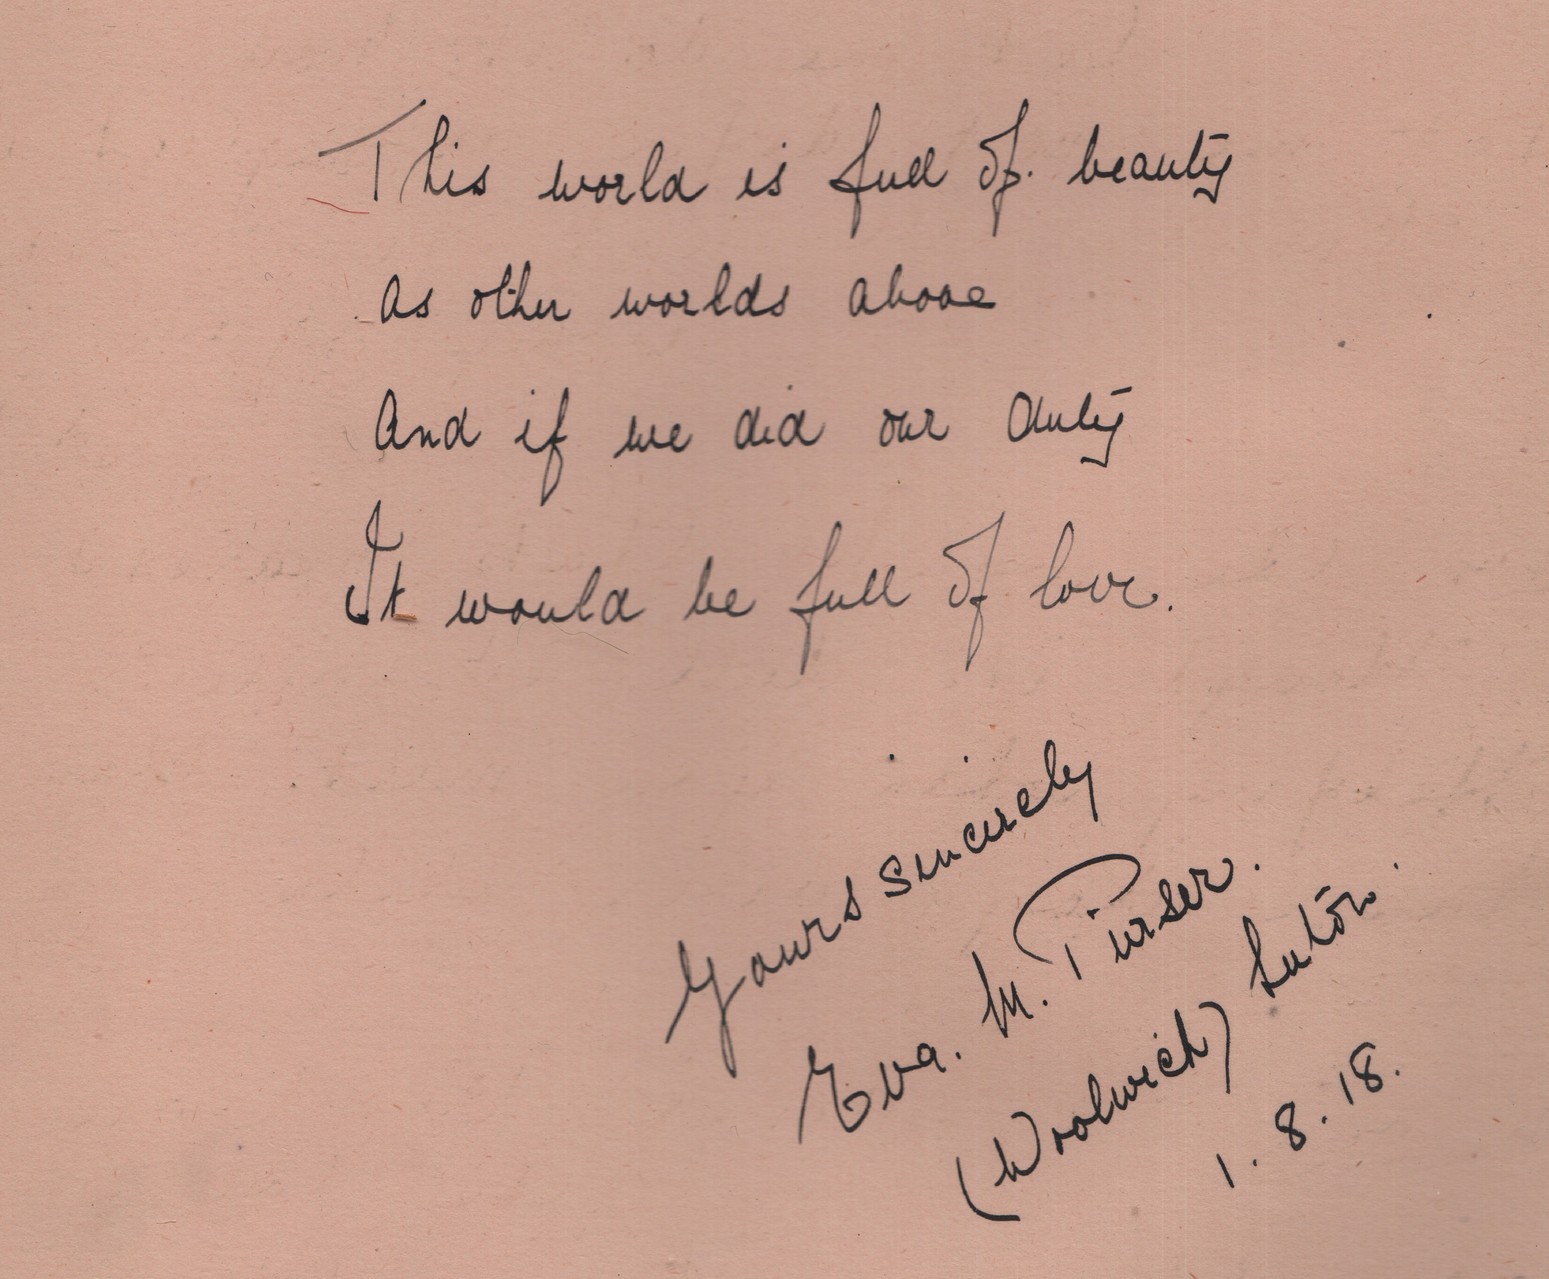 This world is full of. beauty
as other worlds above
And if we did our duty
It would be full of love.
Yours sincerely
Eva. M. Purser.
(Woolwich) Luton.
1.8.18.